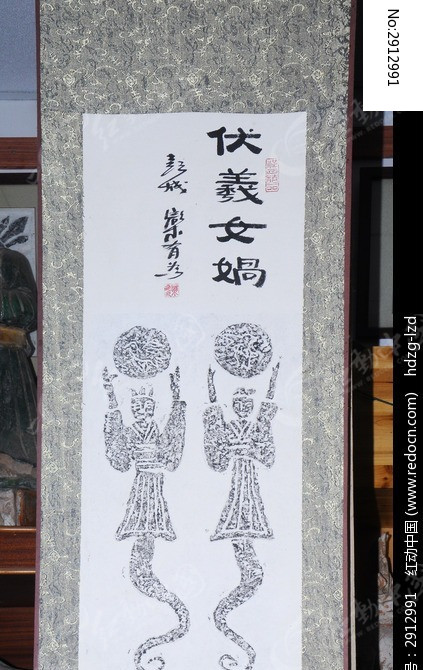 No:2912991
伏羲女娲
彭城
有为
编号：2912991 红动中国 (www.redocn.com) hdzg-lzd